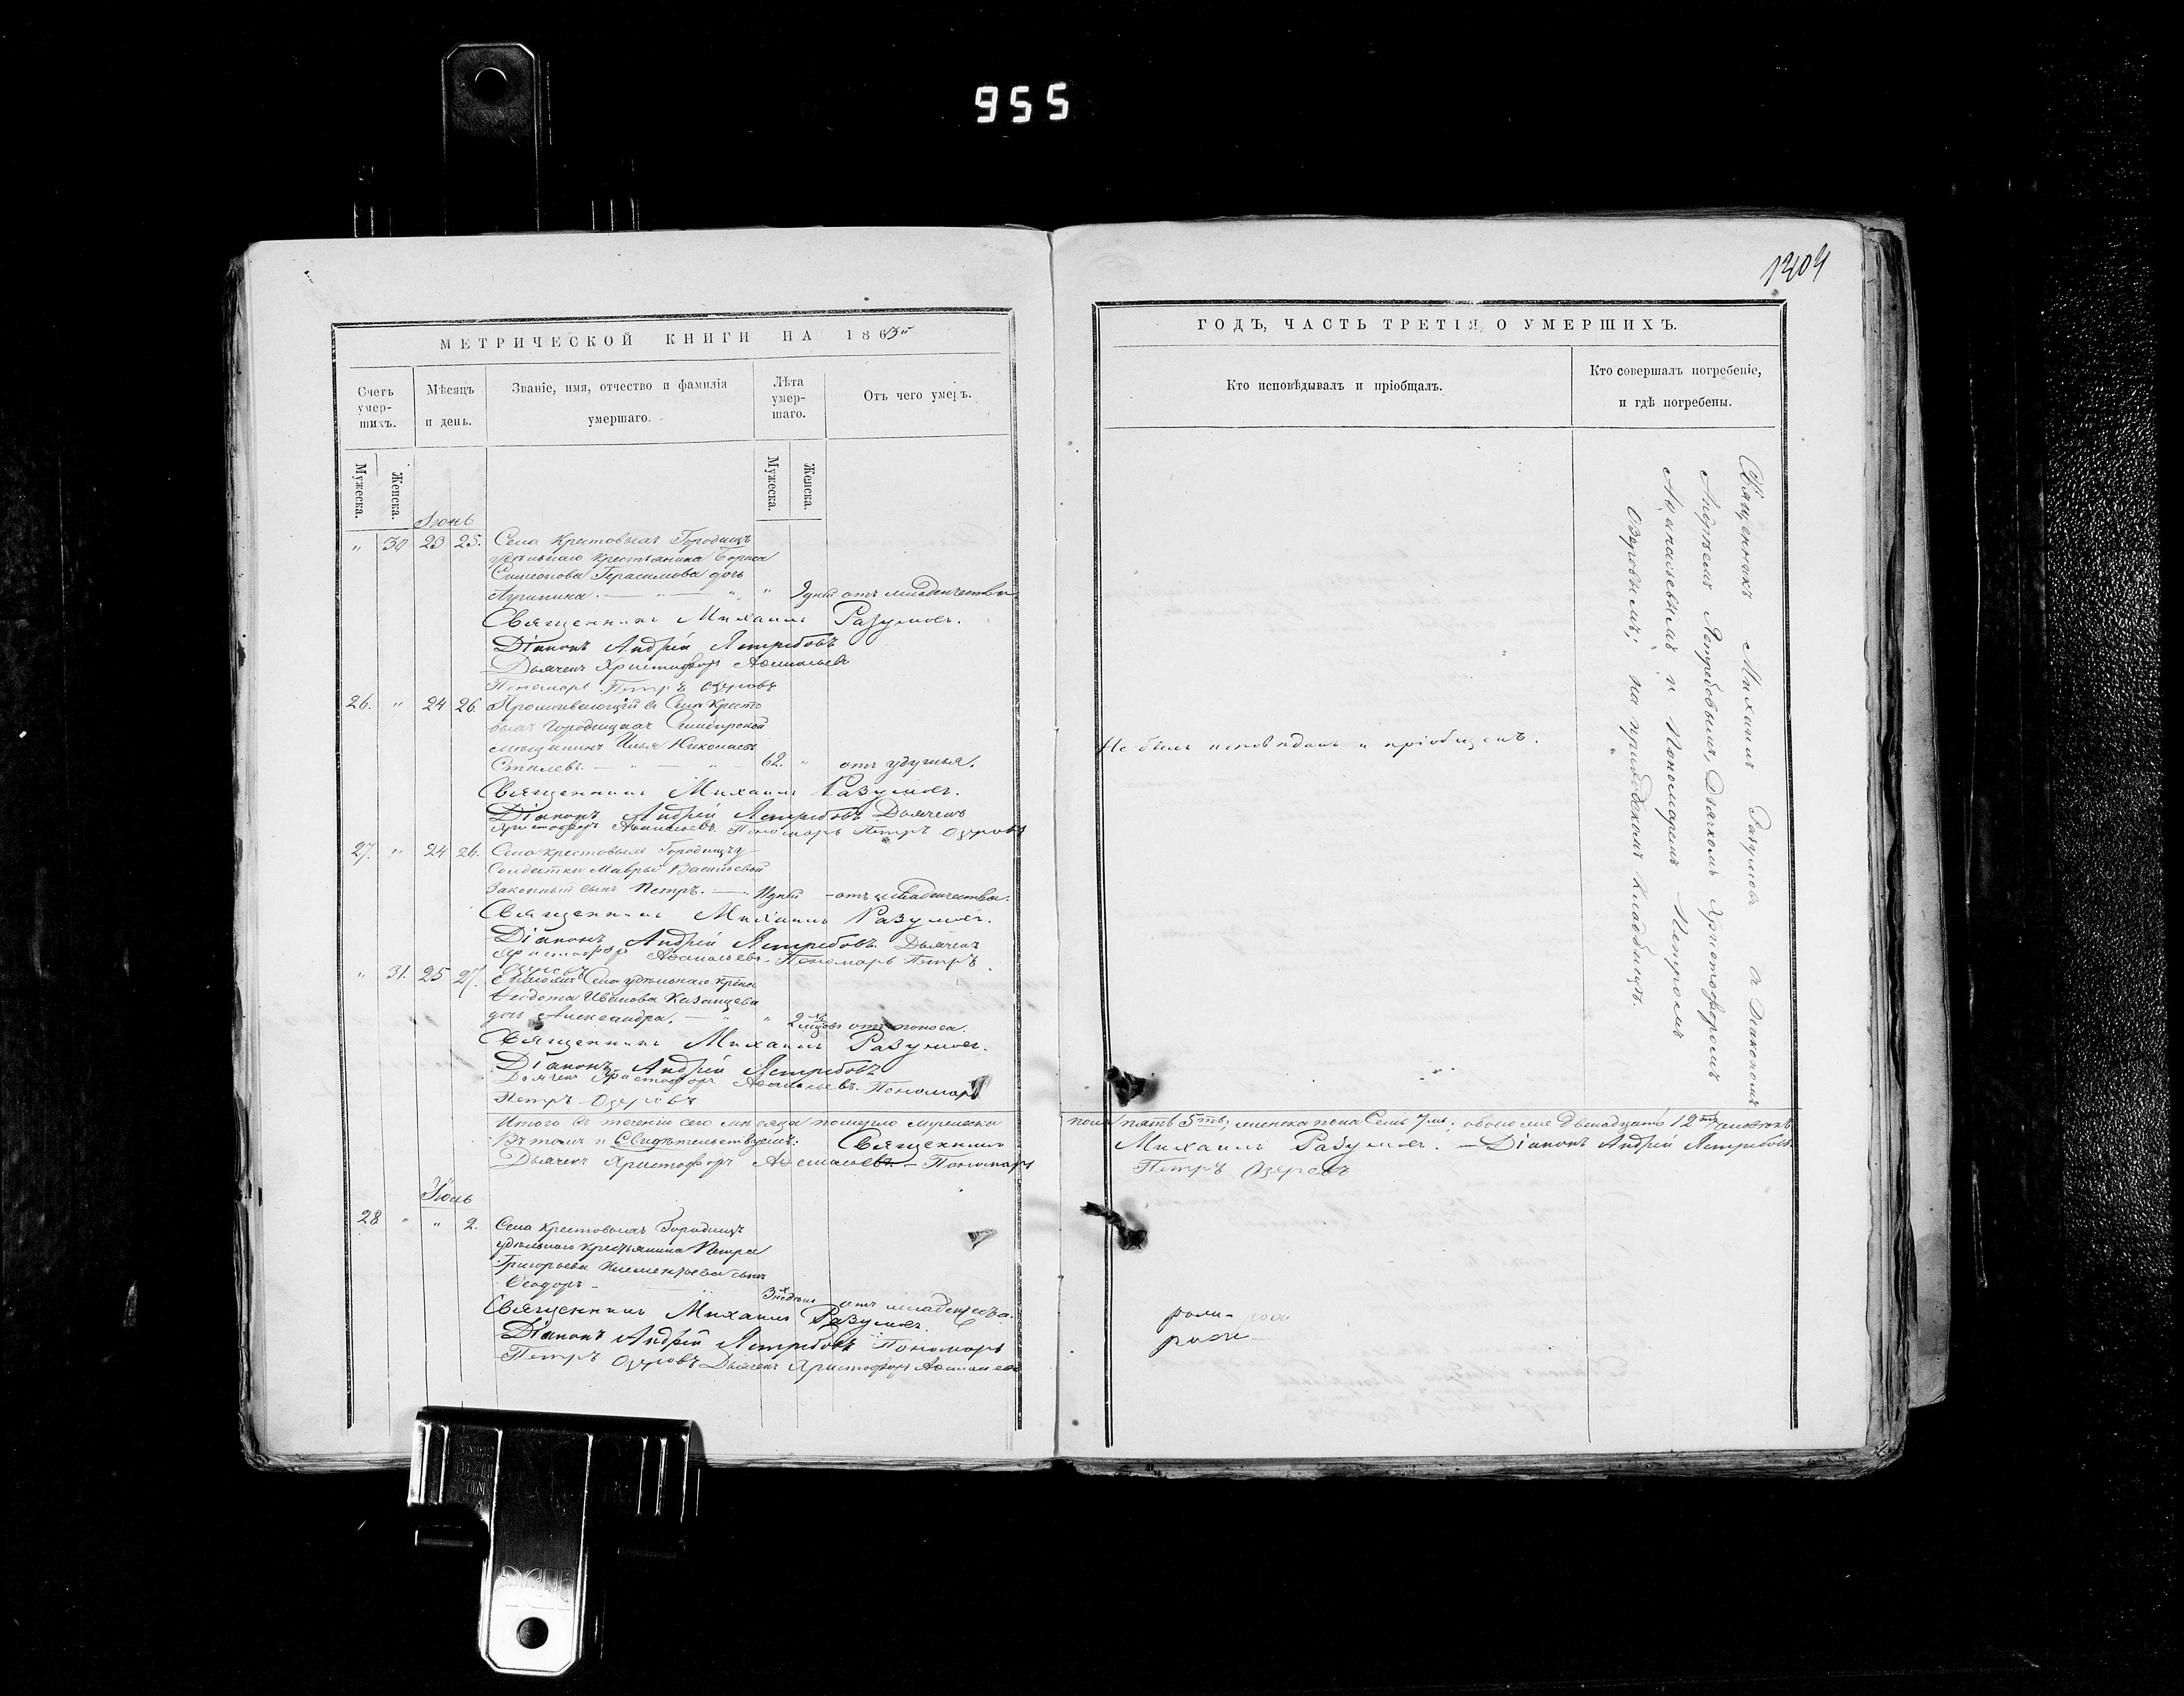 955
1404
МЕТРИЧЕСКОЙ КНИГИ НА 1863й
Счетъ умер-шихъ.
Мѣсяцъ и день.
Званіе, имя, отчество и фамилія умершаго.
Лѣта умер-шаго.
Отъ чего умеръ.
Мужеска.
Женска.
Мужеска.
Женска.
Іюнь
" 30 23 25. Села Крестовыхъ Городищъ
удѣльнаго крестьянина Бориса
Симеонова Герасимова дочь
" дней отъ младенчества
Священникъ Михаилъ Разумовъ.
Діаконъ Андрей Ястребовъ
Дьячекъ Христофоръ Аѳанасьевъ
Пономарь Петръ Озеровъ
26. " 24 26. Проживающій въ Селѣ Кресто
выхъ Городищахъ Симбирской
мѣщанинъ Илья Николаевъ
62. " отъ удушья.
Священникъ Михаилъ Разумовъ.
Діаконъ Андрей Ястребовъ Дьячекъ
Христофоръ Аѳанасьевъ. Пономарь Петръ Озеровъ
27. " 24 26. Села Крестовыхъ Городищъ у
Солдатки Мавры Васильевой
Законный сынъ Петръ. дней - отъ младенчества.
Священникъ Михаилъ Разумовъ.
Діаконъ Андрей Ястребовъ Дьячекъ
Христофоръ Аѳанасьевъ. Пономарь Петръ
Озеровъ
" 31. 25 27. Села удѣльнаго крест
Ѳеодота Иванова Казанцева
дочь Александра. " 2 мѣсяцовъ отъ поноса.
Священникъ Михаилъ Разумовъ.
Діаконъ Андрей Ястребовъ
Дьячекъ Христофоръ Аѳанасьевъ. Пономарь
Петръ Озеровъ
Итого въ теченіи сего мѣсяца померло мужеска
Въ томъ и Свидѣтельствуемъ: Священникъ
Дьячекъ Христофоръ Аѳанасьевъ - Пономарь
Іюль
28 " " 2. Села Крестовыхъ Городищъ
удѣльнаго крестьянина Петра
Григорьева Клементьева сынъ
Ѳеодоръ - 3хъ недѣль отъ младенчества.
Священникъ Михаилъ Разумовъ.
Діаконъ Андрей Ястребовъ Пономарь
Петръ Озеровъ Дьячекъ Христофоръ Аѳанасьевъ
ГОДЪ, ЧАСТЬ ТРЕТІЯ, О УМЕРШИХЪ.
Кто исповѣдывалъ и пріобщалъ.
Кто совершалъ погребеніе, и гдѣ погребены.
Священникъ Михаилъ Разумовъ съ Діакономъ
Андреемъ Ястребовымъ, Дьячкомъ Христофоромъ
Аѳанасьевымъ и Пономаремъ Петромъ
Озеровымъ; на приходскомъ кладбищѣ.
Не былъ исповѣданъ и пріобщенъ.
пола пять 5ть; женска пола Семь 7мь; обоего же двенадцать 12ть человѣкъ
Михаилъ Разумовъ. - Діаконъ Андрей Ястребовъ
Петръ Озеровъ